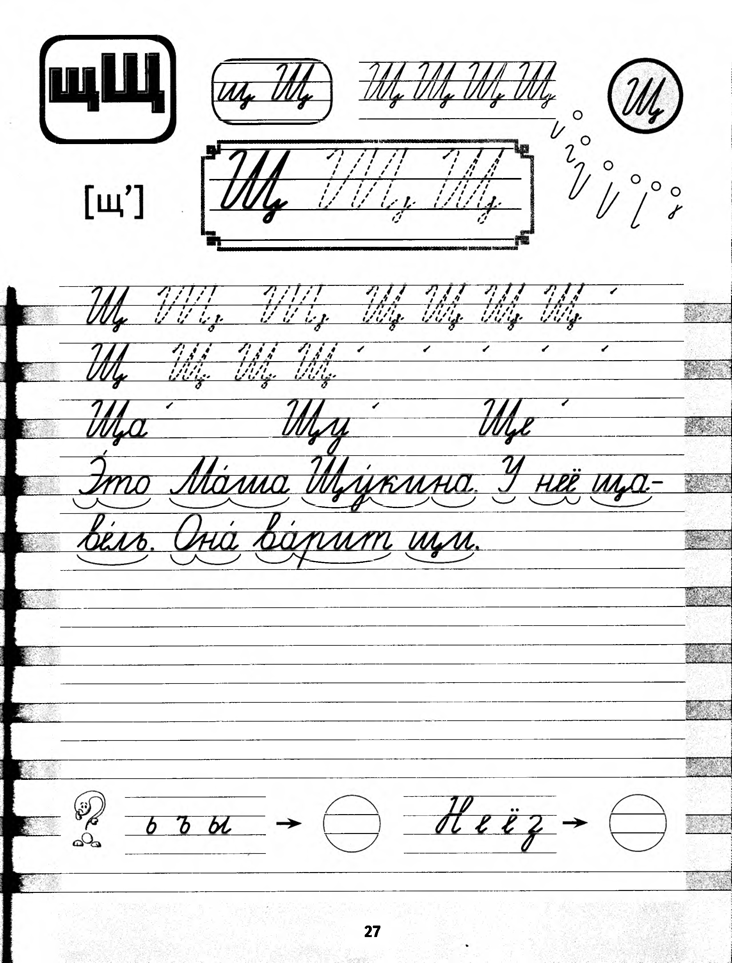 щЩ
щ Щ
Щ Щ Щ Щ
Щ
[щ’]
Щ Щ Щ
Щ Щ Щ Щ Щ Щ Щ
Щ Щ Щ Щ
Ща Щу Ще
Э́то Ма́ша Щу́кина. У неё ща-
ве́ль. Она́ ва́рит щи.
ь ъ ы → Н е ё з →
27